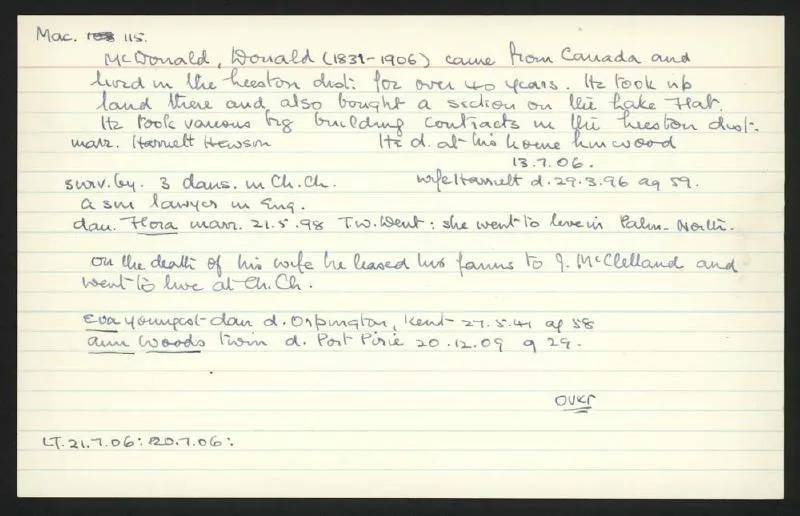 Mac. 115.
McDonald, Donald (1831-1906) came from Canada and
lived in the Leeston dist: for over 40 years. He took up
land there and also bought a section on the Lake Flat.
He took various big building contracts in the Leeston dist.
marr. Harriett Hewson He d. at his home Linwood
13.7.06.
surv. by. 3 daus. in Ch.Ch. wife Harriett d. 29.3.96 ag 59.
a son lawyer in Eng.
dau. Flora marr. 21.5.98 T.W. Went: she went to live in Palm. North.
On the death of his wife he leased his farms to J. McClelland and
went to live at Ch.Ch.
Eva youngest dau d. Orpington, Kent 27.5.41 ag 58
ann Woods twin d. Port Pirie 20.12.09 a 29.
OVER
LT. 21.7.06: 20.7.06: